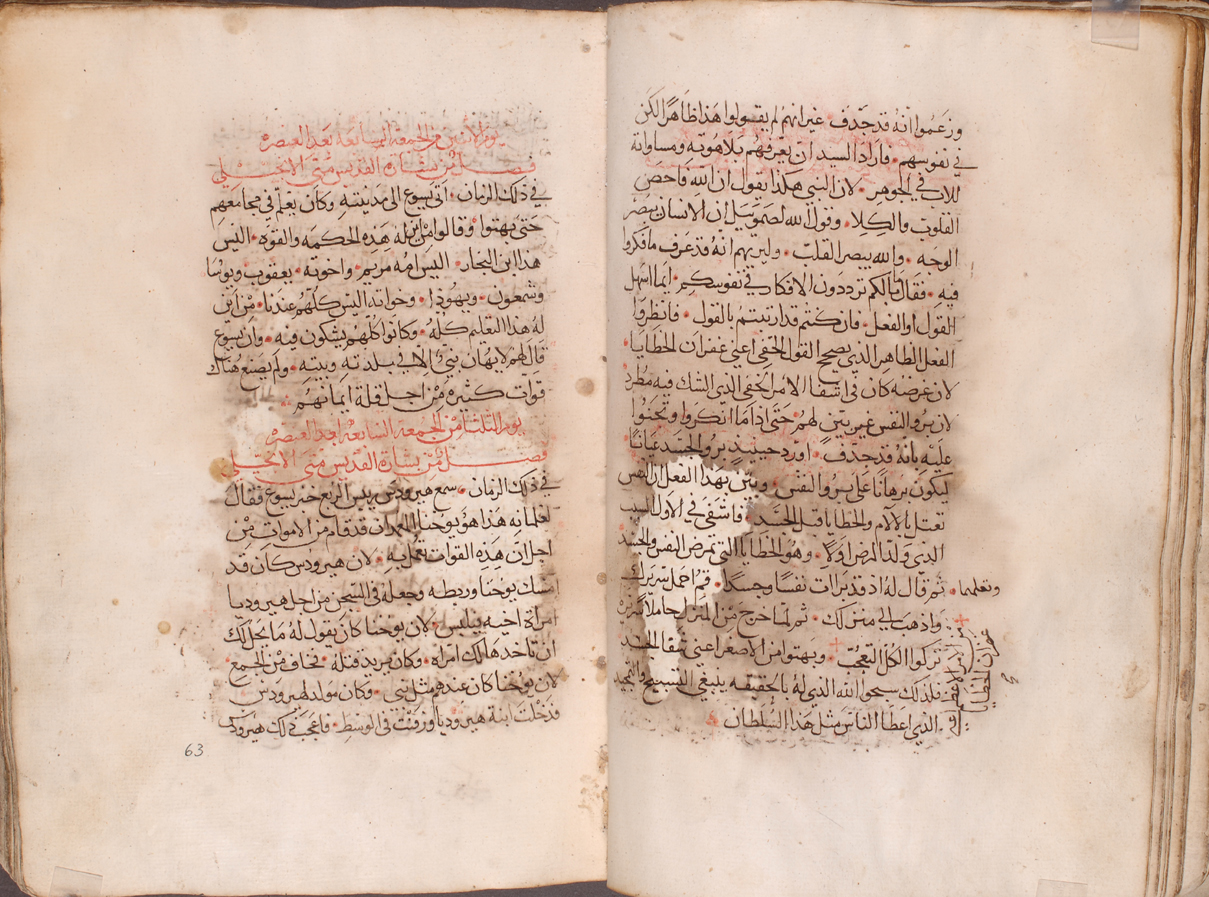 وزعموا انه قد جدف • غير انهم لم يقولوا هذا ظاهرًا لكن
في نفوسهم • فاراد السيد ان يعرفهم بلاهوته ومساواته
للاب في الجوهر • لان النبي هكذا يقول ان الله فاحص
القلوب والكلا • وقول الله لصموييل ان الانسان يبصر
الوجه • والله يبصر القلب • وليريهم انه قد عرف ما فكروا
فيه • فقال ما بالكم ترددون الافكار في نفوسكم • ايما اسهل
القول او الفعل • فان كنتم قد ارتبتم بالقول • فانظروا
الفعل الظاهر الذي يصحح القول الخفي اعني غفران الخطايا •
لان غرضه كان في اشفا الامر الخفي الذي الشك فيه مطرد
لان برو النفس غير بين لهم • حتى اذا ما انكروا وتجنوا
عليه بانه قد جدف • اورد حينيذٍ برو الجسد عيانًا
ليكون برهانًا على برو النفس • وبين بهذا الفعل ان النفس
تعتل بالآلام والخطايا قبل الجسد • فاشفى في الاول السبب
الذي ولد المرض اولا • وهو الخطايا التي تمرض النفس والجسد
وتعلمها • ثم قال له اذ قد برات نفسًا وجسدًا • قم احمل سريرك
واذهب الى منزلك • ثم لما خرج من المنزل حاملا سريره
تركوا الكل التعجب • وبهتوا من الاصغر اعني شفا الجسد
فلذلك سبحوا الله الذي له بالحقيقه ينبغي التسبيح والتمجيد
الذي اعطا الناس مثل هذا السلطان
غفران الخطايا
يوم الاثنين من الجمعه السابعه بعد العنصره
فصل من بشارة القديس متى الانجيلي
في ذلك الزمان • اتى يسوع الى مدينته وكان يعلم في مجامعهم
حتى بهتوا • وقالوا من اين له هذه الحكمه والقوه • اليس
هذا ابن النجار • اليس امه مريم • واخوته • يعقوب ويوسا
وشمعون • ويهوذا • وخواته اليس كلهم عندنا • من اين
له هذا التعليم كله • وكانوا كلهم يشكون فيه • وان يسوع
قال لهم لا يهان نبي الا في بلدته وبيته • ولم يصنع هناك
قوات كثيره من اجل قلة ايمانهم
يوم الثلثا من الجمعه السابعه بعد العنصره
فصل من بشارة القديس متى الانجيلي
في ذلك الزمان • سمع هيرودس رييس الربع خبر يسوع فقال
لغلمانه هذا هو يوحنا المعمدان قد قام من الاموات من
اجل ان هذه القوات تعمل به • لان هيرودس كان قد
امسك يوحنا وربطه وجعله في السجن من اجل هيروديا
امراة اخيه فيلبس • لان يوحنا كان يقول له ما يحل لك
ان تاخد هالك امراه • وكان يريد قتله • فخاف من الجمع •
لان يوحنا كان عندهم مثل نبي • وكان مولد لهيرودس
فدخلت ابنة هيروديا ورفنت في الوسط • فاعجب ذلك هيرودس
63